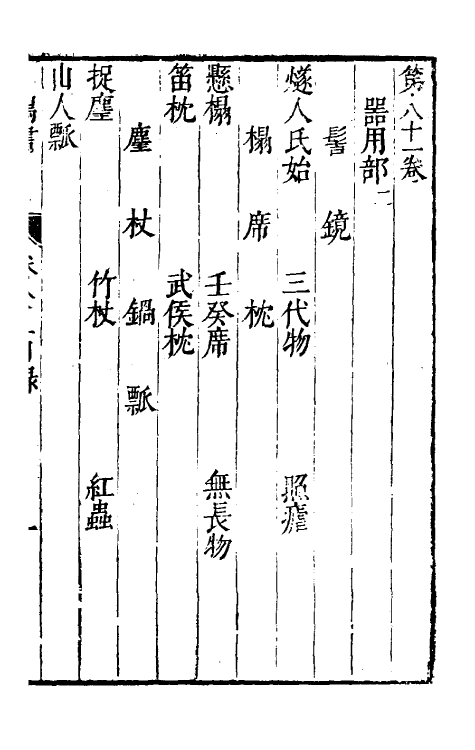 第八十一卷
器用部二
髻 鏡
燧人氏始 三代物 照癧
榻 席 枕
懸榻 壬癸席 無長物
笛枕 武侯枕
麈 杖 鍋 瓢
捉麈 竹杖 紅蟲
山人瓢